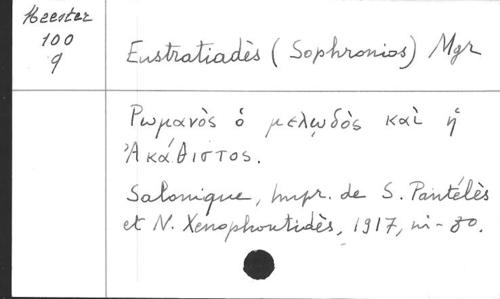 Heester
100
9
Eustratiadès (Sophronios) Mgr
Ρωμανὸς ὁ μελῳδὸς καὶ ἡ
Ἀκάθιστος.
Salonique, Impr. de S. Pantélès
et N. Xenophontidès, 1917, in-8o.